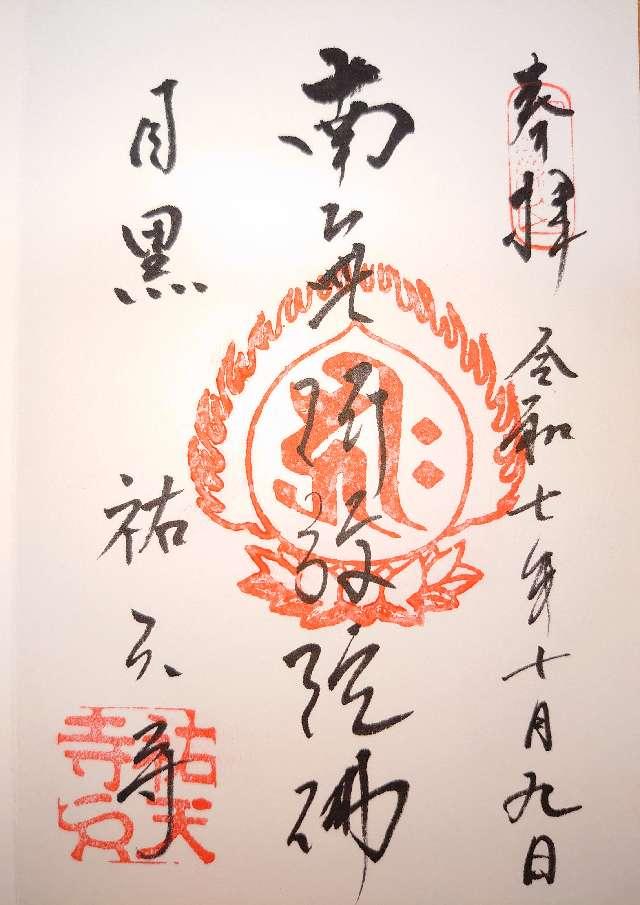 奉拝
令和七年十月九日
南無阿弥陀佛
目黒
祐天寺
祐天
寺之